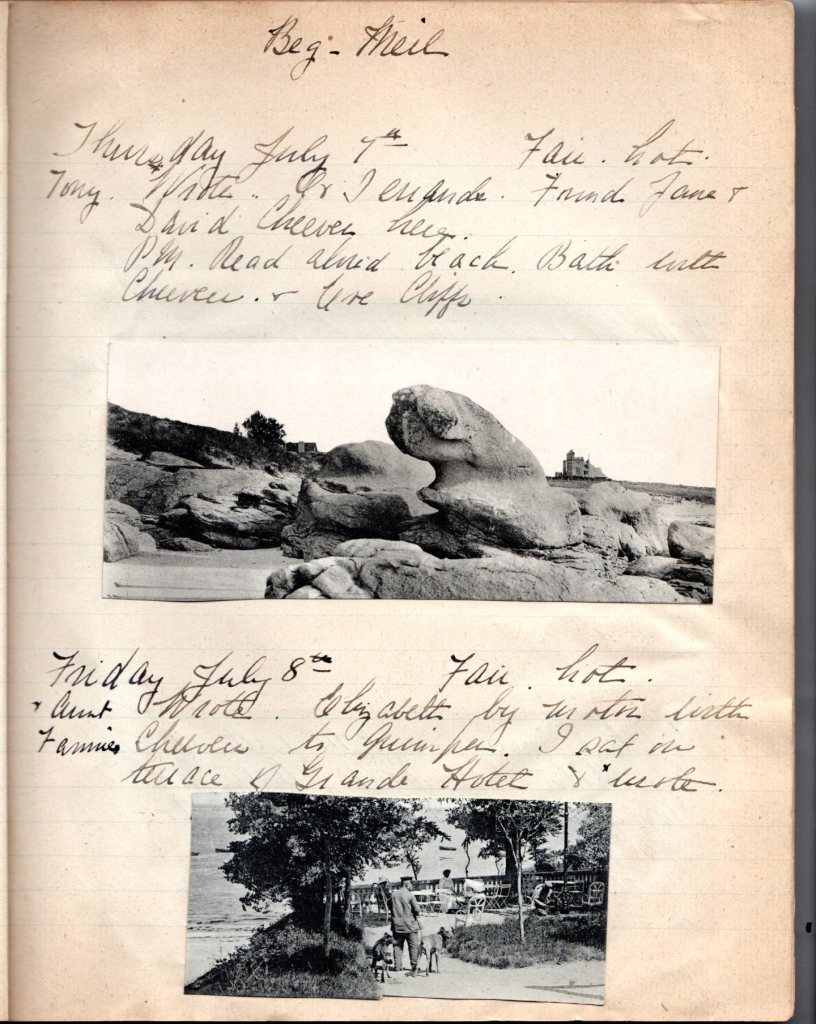 Beg-Meil
Thursday July 7th Fair. hot.
Tony. Wrote. Found Jane &
David Cheever here.
P.M. Read aloud beach. Bath with
Cheever. & Cliffs.
Friday July 8th Fair. hot.
Aunt Wrote. Elizabeth by motor with
Fannie Cheever to Quimper. I sat on
terrace of Grande Hotel & wrote.